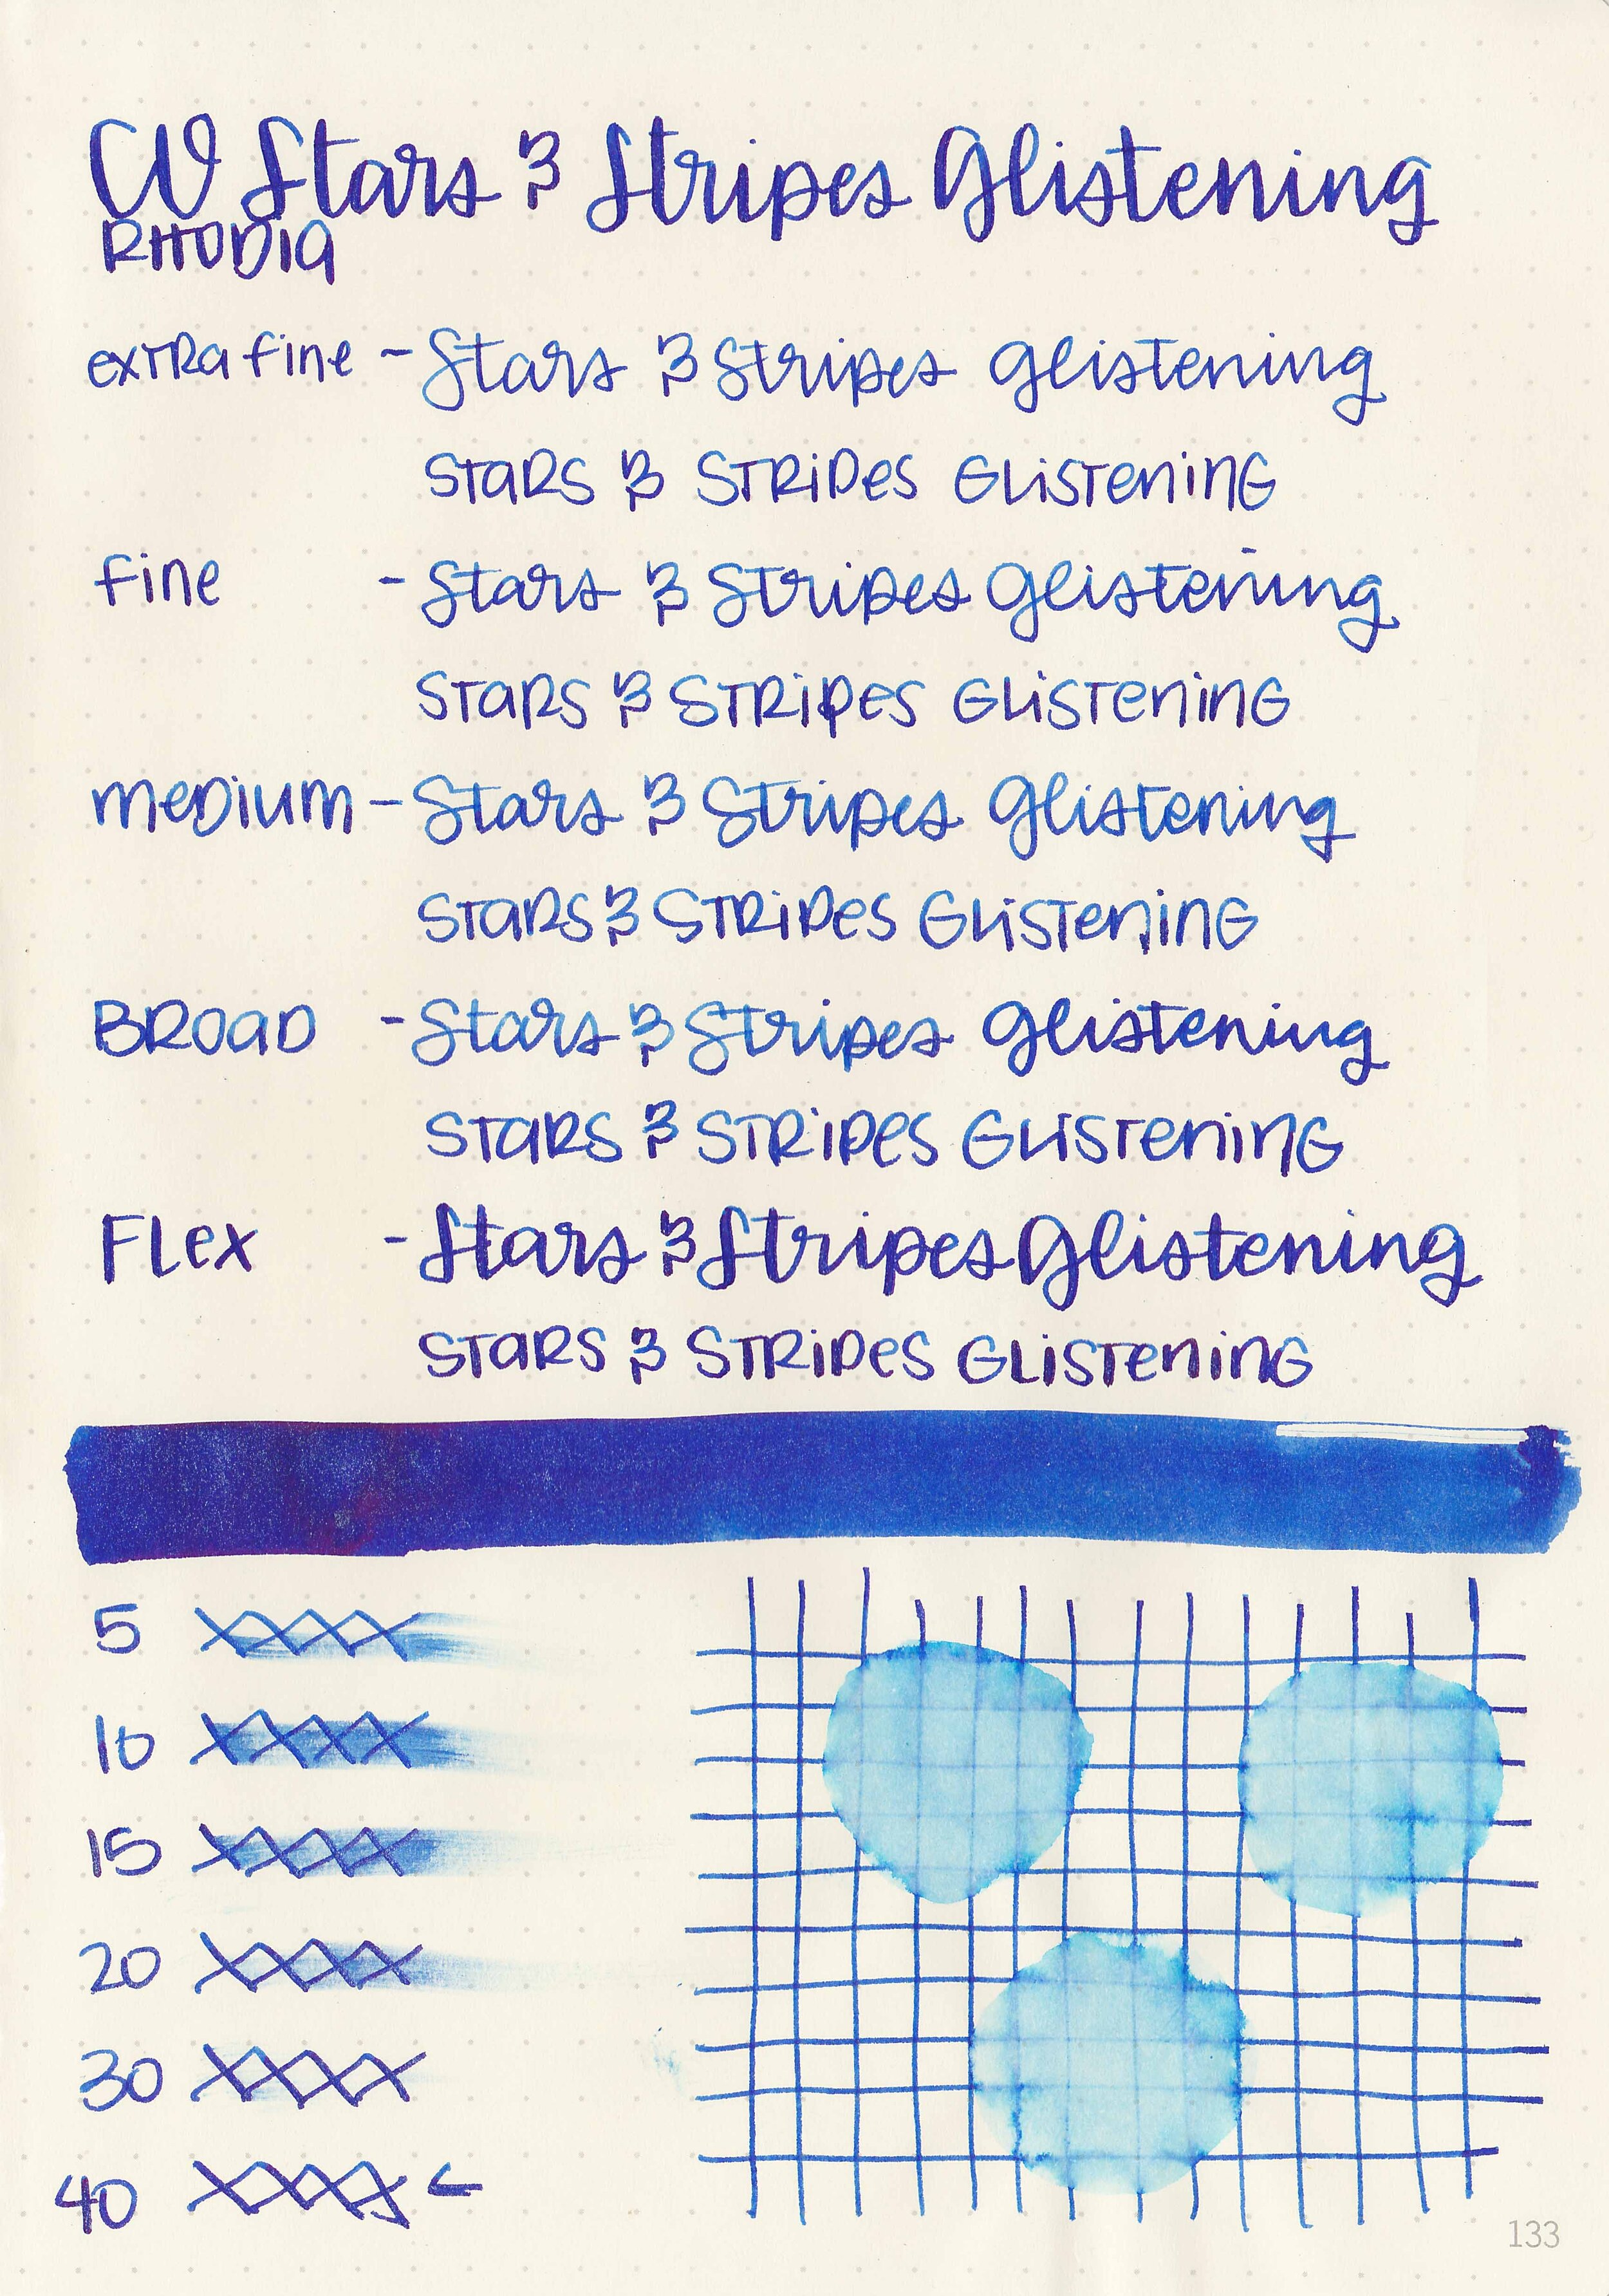 CV Stars & Stripes Glistening
RHODIA
extra fine - Stars & Stripes Glistening
STARS & STRIPES GLISTENING
fine - Stars & Stripes Glistening
STARS & STRIPES GLISTENING
medium - Stars & Stripes Glistening
STARS & STRIPES GLISTENING
BROAD - Stars & Stripes Glistening
STARS & STRIPES GLISTENING
FLex - Stars & Stripes Glistening
STARS & STRIPES GLISTENING
5
10
15
20
30
40 ←
133